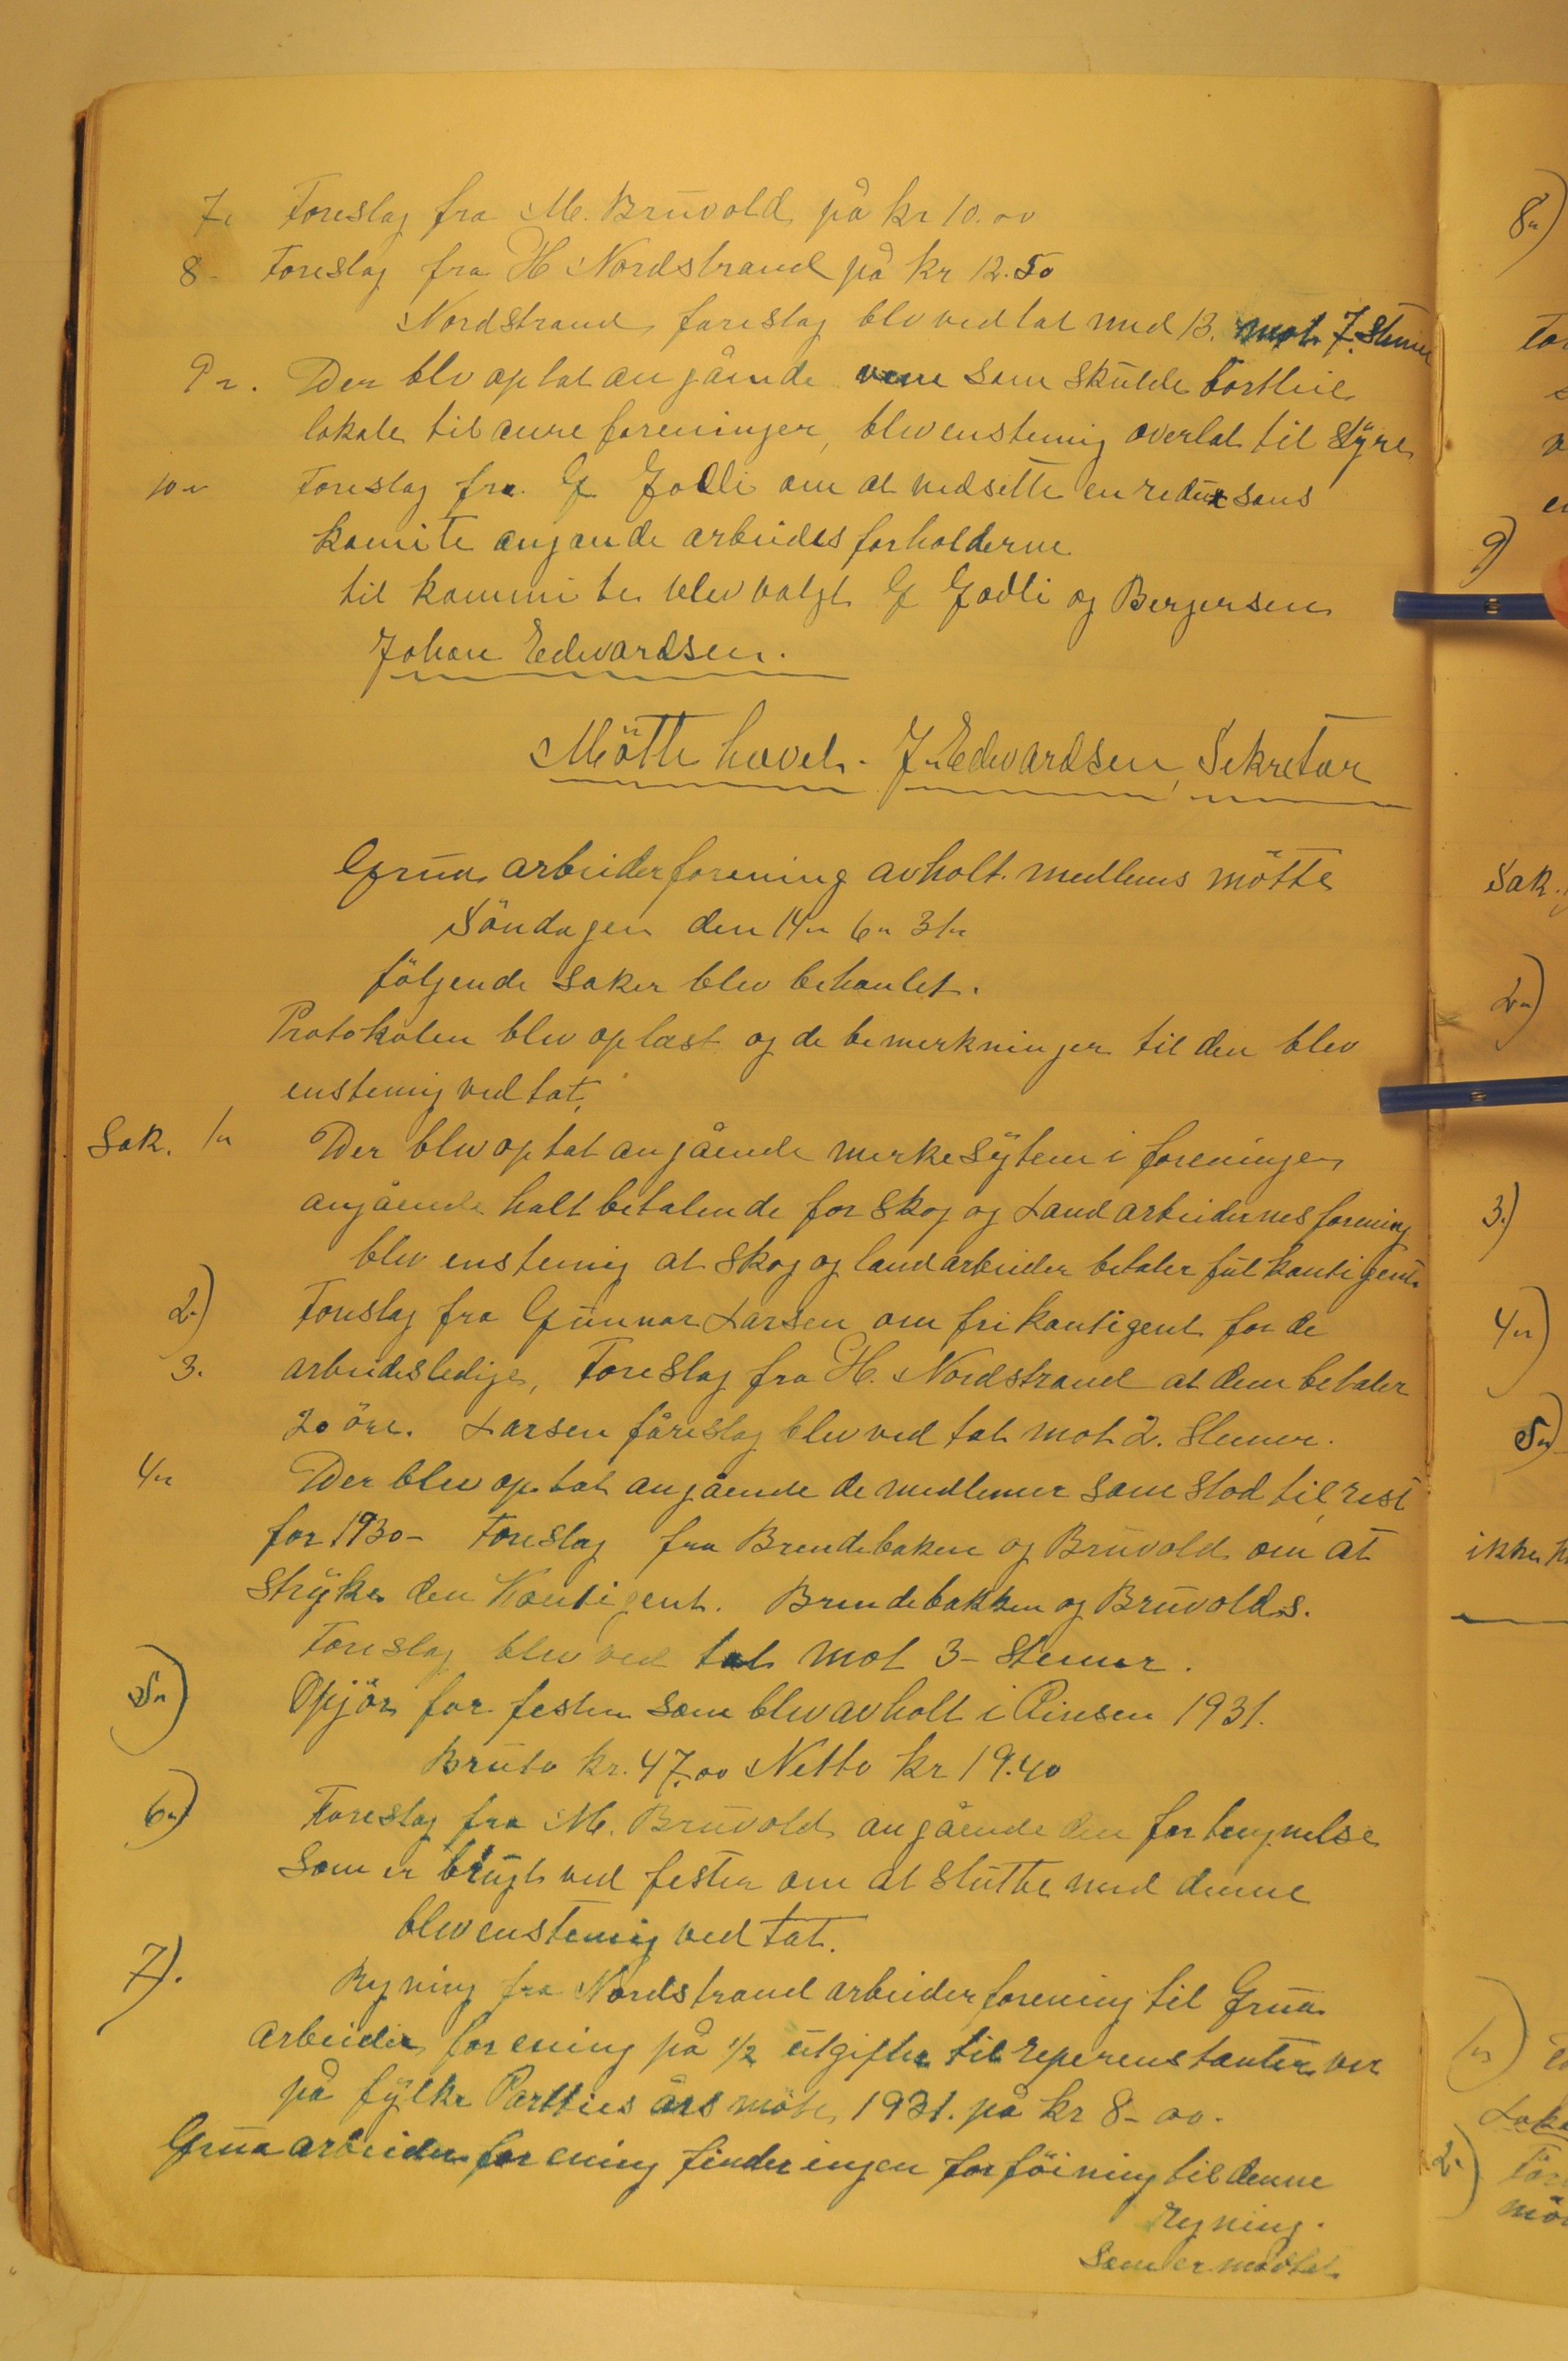 7. Foreslag fra M. Brūvold på kr 10.00
8- Foreslag fra H Nordstrand på kr 12.50
Nordstrand, foreslag blev vedtat med 13. mot. 7. Stemer
9. Der blev optat angående vem som skulde bortleie
lokale til anre foreninger, blev enstemig overlat til Styre
10. Foreslag fra G Jodli om at nedsette en reduxsons
komite angande arbeidesforholderne
til kommite blev valgt G Jodli og Bergersen
Johan Edwardsen.
Mötte hevet. J. Edwardsen, Sekretær
Grūa arbeiderforening avholt medlems mötte
Söndagen den 14. 6. 31.
fölgende saker blev behanlet.
Protokolen blev oplæst og de bemerkninger til den blev
enstemig ved tat.
Sak. 1. Der blev optat angående merke sÿtem i foreningen
angående halt betalende for Skog og Land arbeidernes forening
blev enstemig at Skog og land arbeider betaler fūl kontigent
2.) Foreslag fra Gūnnar Larsen om fri kontigent for de
3. arbeidesledige, Foreslag fra H. Nordstrand at dem betaler
20 öre. Larsen fåreslag blev ved tat mot 2. Stemer.
4. Der blev op tat angående de medlemer som stod til rest
for 1930- Foreslag fra Brendebaken og Brūvold om at
Strÿke den Kontigent. Brendebakken og Brūvolds.
Foreslag blev ved tat mot 3- Stemer.
5.) Opjör for festen som blev avholt i Pinsen 1931.
Brūto kr. 47.00 Netto kr 19.40
6.) Foreslag fra M. Brūvold angående den fortengnelse
Som er brūgt ved fester om at slutte med denne
blev enstemig ved tat.
7). Regning fra Nordstrand arbeiderforening til Grūa
arbeider forening på 1/2 utgifter til reperenstanter
på fÿlke Partties års möte 1931. på kr 8-00.
Grūa arbeider forening finder ingen forföining til denne
Regning.
Som er
8.)
9)
Sak.
2.)
3.)
4.)
5.)
ikke
2.)